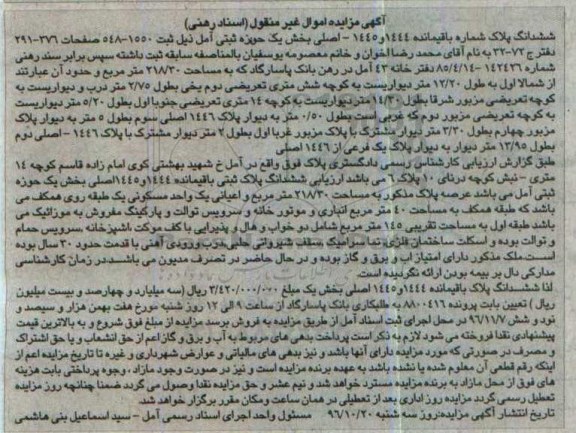 آگهی مزایده اموال غیر منقول (اسناد رهنی)
ششدانگ پلاک شماره باقیمانده ۱۴۴۴ و ۱۴۴۵ - اصلی بخش یک حوزه ثبتی آمل ذیل ثبت ۱۵۵۰-۵۴۸ صفحات ۳۷۶-۲۹۱
دفتر ج ۷۲-۳۲ به نام آقای محمد رضا اخوان و خانم معصومه یوسفیان بالمناصفه سابقه ثبت داشته سپس برابر سند رهنی
شماره ۱۴۲۴۳۶ -۸۵/۴/۱۴ دفتر خانه ۴۳ آمل در رهن بانک پاسارگاد که به مساحت ۲۱۸/۳۰ متر مربع و حدود آن عبارتند
از شمالا اول به طول ۱۲/۲۰ متر دیواریست به کوچه شش متری تعریضی دوم پخی بطول ۲/۷۵ متر درب و دیواریست به
کوچه تعریضی مزبور شرقا بطول ۱۴/۳۰ متر دیواریست به کوچه ۱۴ متری تعریضی جنوبا اول بطول ۵/۲۰ متر دیواریست
به کوچه تعریضی مزبور دوم که غربی است بطول ۰/۵۰ متر به دیوار پلاک ۱۴۴۶ اصلی سوم بطول ۵ متر به دیوار پلاک
مزبور چهارم بطول ۳/۳۰ متر دیوار مشترک با پلاک مزبور غربا اول بطول ۲ متر دیوار مشترک با پلاک ۱۴۴۶ - اصلی دوم
بطول ۱۳/۹۵ متر دیوار به دیوار پلاک یک فرعی از ۱۴۴۶ اصلی
طبق گزارش ارزیابی کارشناس رسمی دادگستری پلاک فوق واقع در آمل خ شهید بهشتی کوی امام زاده قاسم کوچه ۱۴
متری - نبش کوچه درنای ۱۰ پلاک ۶ می باشد ارزیابی ششدانگ پلاک ثبتی باقیمانده ۱۴۴۴ و ۱۴۴۵ اصلی بخش یک حوزه
ثبتی آمل می باشد عرصه پلاک مذکور به مساحت ۲۱۸/۳۰ متر مربع و اعیانی یک واحد مسکونی یک طبقه روی همکف می
باشد که طبقه همکف به مساحت ۴۰ متر مربع انباری و موتور خانه و سرویس توالت و پارکینگ مفروش به موزائیک می
باشد طبقه اول به مساحت تقریبی ۱۴۵ متر مربع شامل دو خواب و هال و پذیرایی با کف موکت ،آشپزخانه ،سرویس حمام
و توالت بوده و اسکلت ساختمان فلزی نما سرامیک ،سقف شیروانی حلبی درب ورودی آهنی با قدمت حدود ۳۰ سال بوده
است.ملک مذکور دارای امتیاز اب و برق و گاز بوده و در حال حاضر در تصرف مدیون می باشد.در زمان کارشناسی
مدارکی دال بر بیمه بودن ارائه نگردیده است.
لذا ششدانگ پلاک باقیمانده ۱۴۴۴ و ۱۴۴۵ اصلی بخش یک مبلغ ۳/۴۲۰/۰۰۰/۰۰۰ ریال (سه میلیارد و چهارصد و بیست میلیون
ریال ) تعیین بابت پرونده ۸۸۰۰۴۱۶ به طلبکاری بانک پاسارگاد از ساعت ۹ الی ۱۲ روز شنبه مورخ هفت بهمن هزار و سیصد و
نود و شش ۹۶/۱۱/۷ در محل اجرای ثبت اسناد آمل از طریق مزایده به فروش برسد مزایده از مبلغ فوق شروع و به بالاترین قیمت
پیشنهادی نقدا فروخته می شود لازم به ذکر است پرداخت بدهی های مربوط به آب و برق و گاز اعم از حق انشعاب و یا حق اشتراک
و مصرف در صورتی که مورد مزایده دارای آنها باشد و نیز بدهی های مالیاتی و عوارض شهرداری و غیره تا تاریخ مزایده اعم از
اینکه رقم قطعی آن معلوم شده یا نشده باشد به عهده برنده مزایده است و نیز در صورت وجود مازاد ، وجوه پرداختی بابت هزینه
های فوق از محل مازاد به برنده مزایده مسترد خواهد شد و نیم عشر و حق مزایده نقدا وصول می گردد ضمنا چنانچه روز مزایده
تعطیل رسمی گردد مزایده روز اداری بعد از تعطیلی در همان ساعت ومکان مقرر برگزار خواهد شد.
تاریخ انتشار آگهی مزایده:روز سه شنبه ۹۶/۱۰/۲۰ مسئول واحد اجرای اسناد رسمی آمل - سید اسماعیل بنی هاشمی